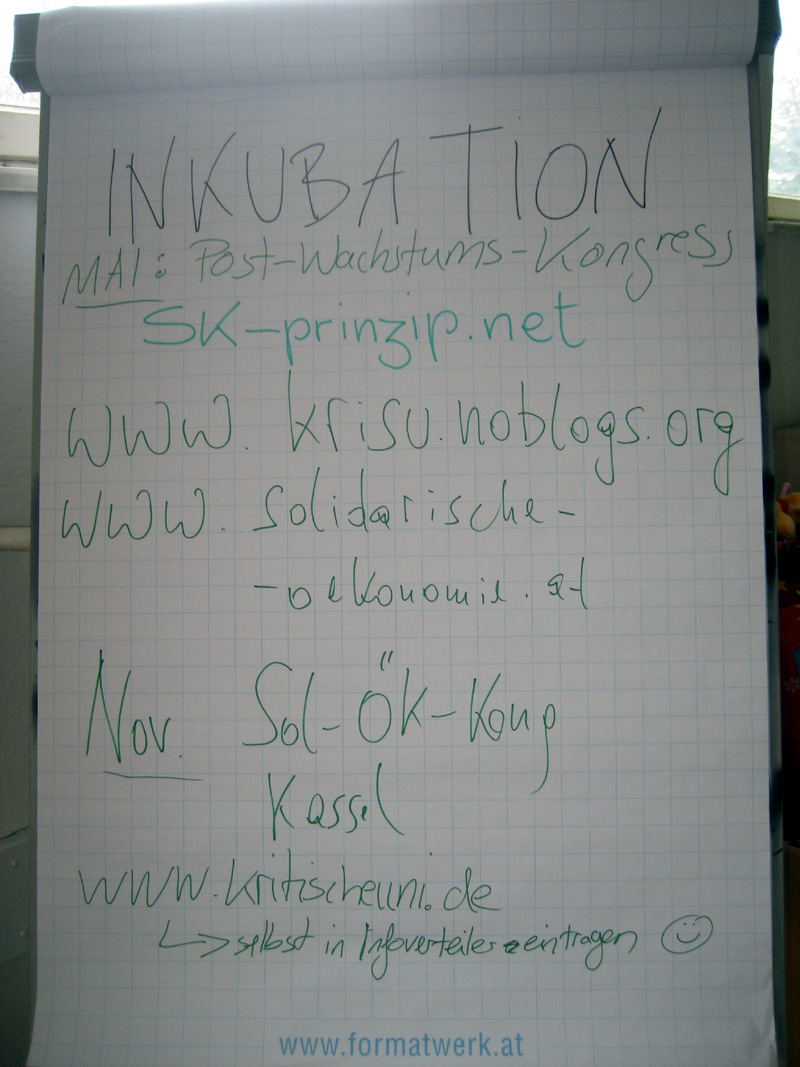 INKUBATION
MAI: Post-Wachstums-Kongress
SK-prinzip.net
www.krisu.noblogs.org
www.solidarische-
-oekonomie.at
Nov. Sol-ÖK-Kong
Kassel
www.kritischeuni.de
↳ selbst in Infoverteiler eintragen ☺
www.formatwerk.at